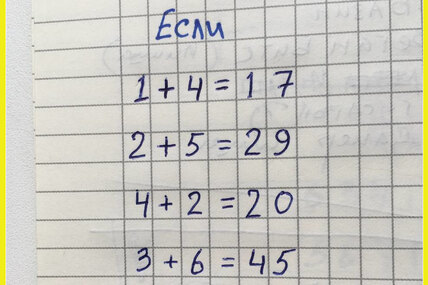 Если
1 + 4 = 17
2 + 5 = 29
4 + 2 = 20
3 + 6 = 45